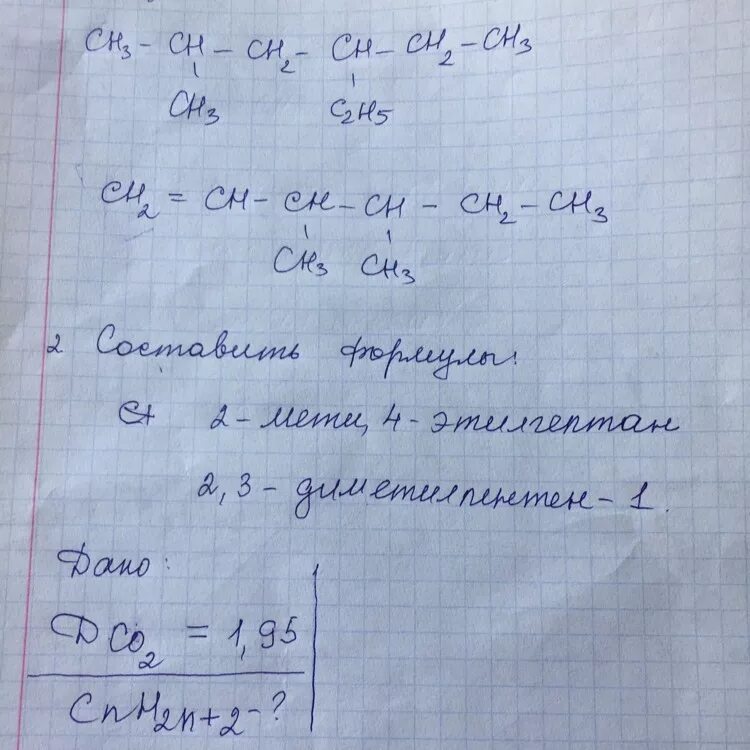 CH₃ - CH - CH₂ - CH - CH₂ - CH₃
CH₃ C₂H₅
CH₂ = CH - CH - CH - CH₂ - CH₃
CH₃ CH₃
2 Составить формулы:
2 - метил, 4 - этилгептан
2, 3 - диметилпентен - 1.
Дано:
DCO₂ = 1,95
CnH₂n+2 - ?